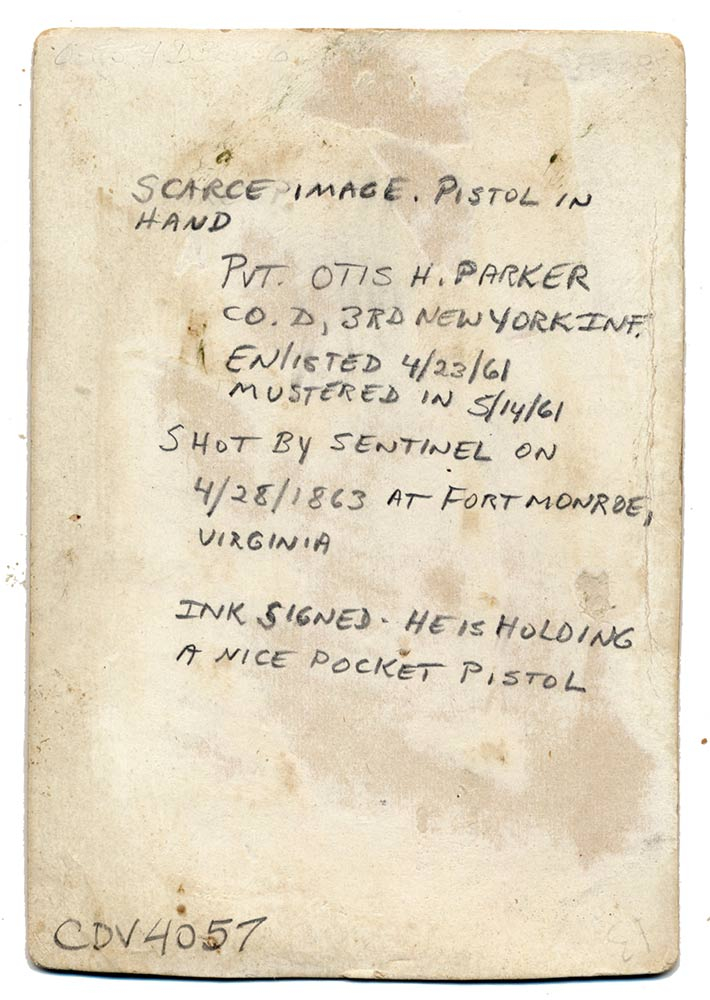 SCARCE IMAGE. PISTOL IN
HAND
PVT. OTIS H. PARKER
CO. D, 3RD NEW YORK INF.
ENlISTED 4/23/61
MUSTERED IN 5/14/61
SHOT BY SENTINEL ON
4/28/1863 AT FORT MONROE,
VIRGINIA
INK SIGNED - HE IS HOLDING
A NICE POCKET PISTOL
CDV4057